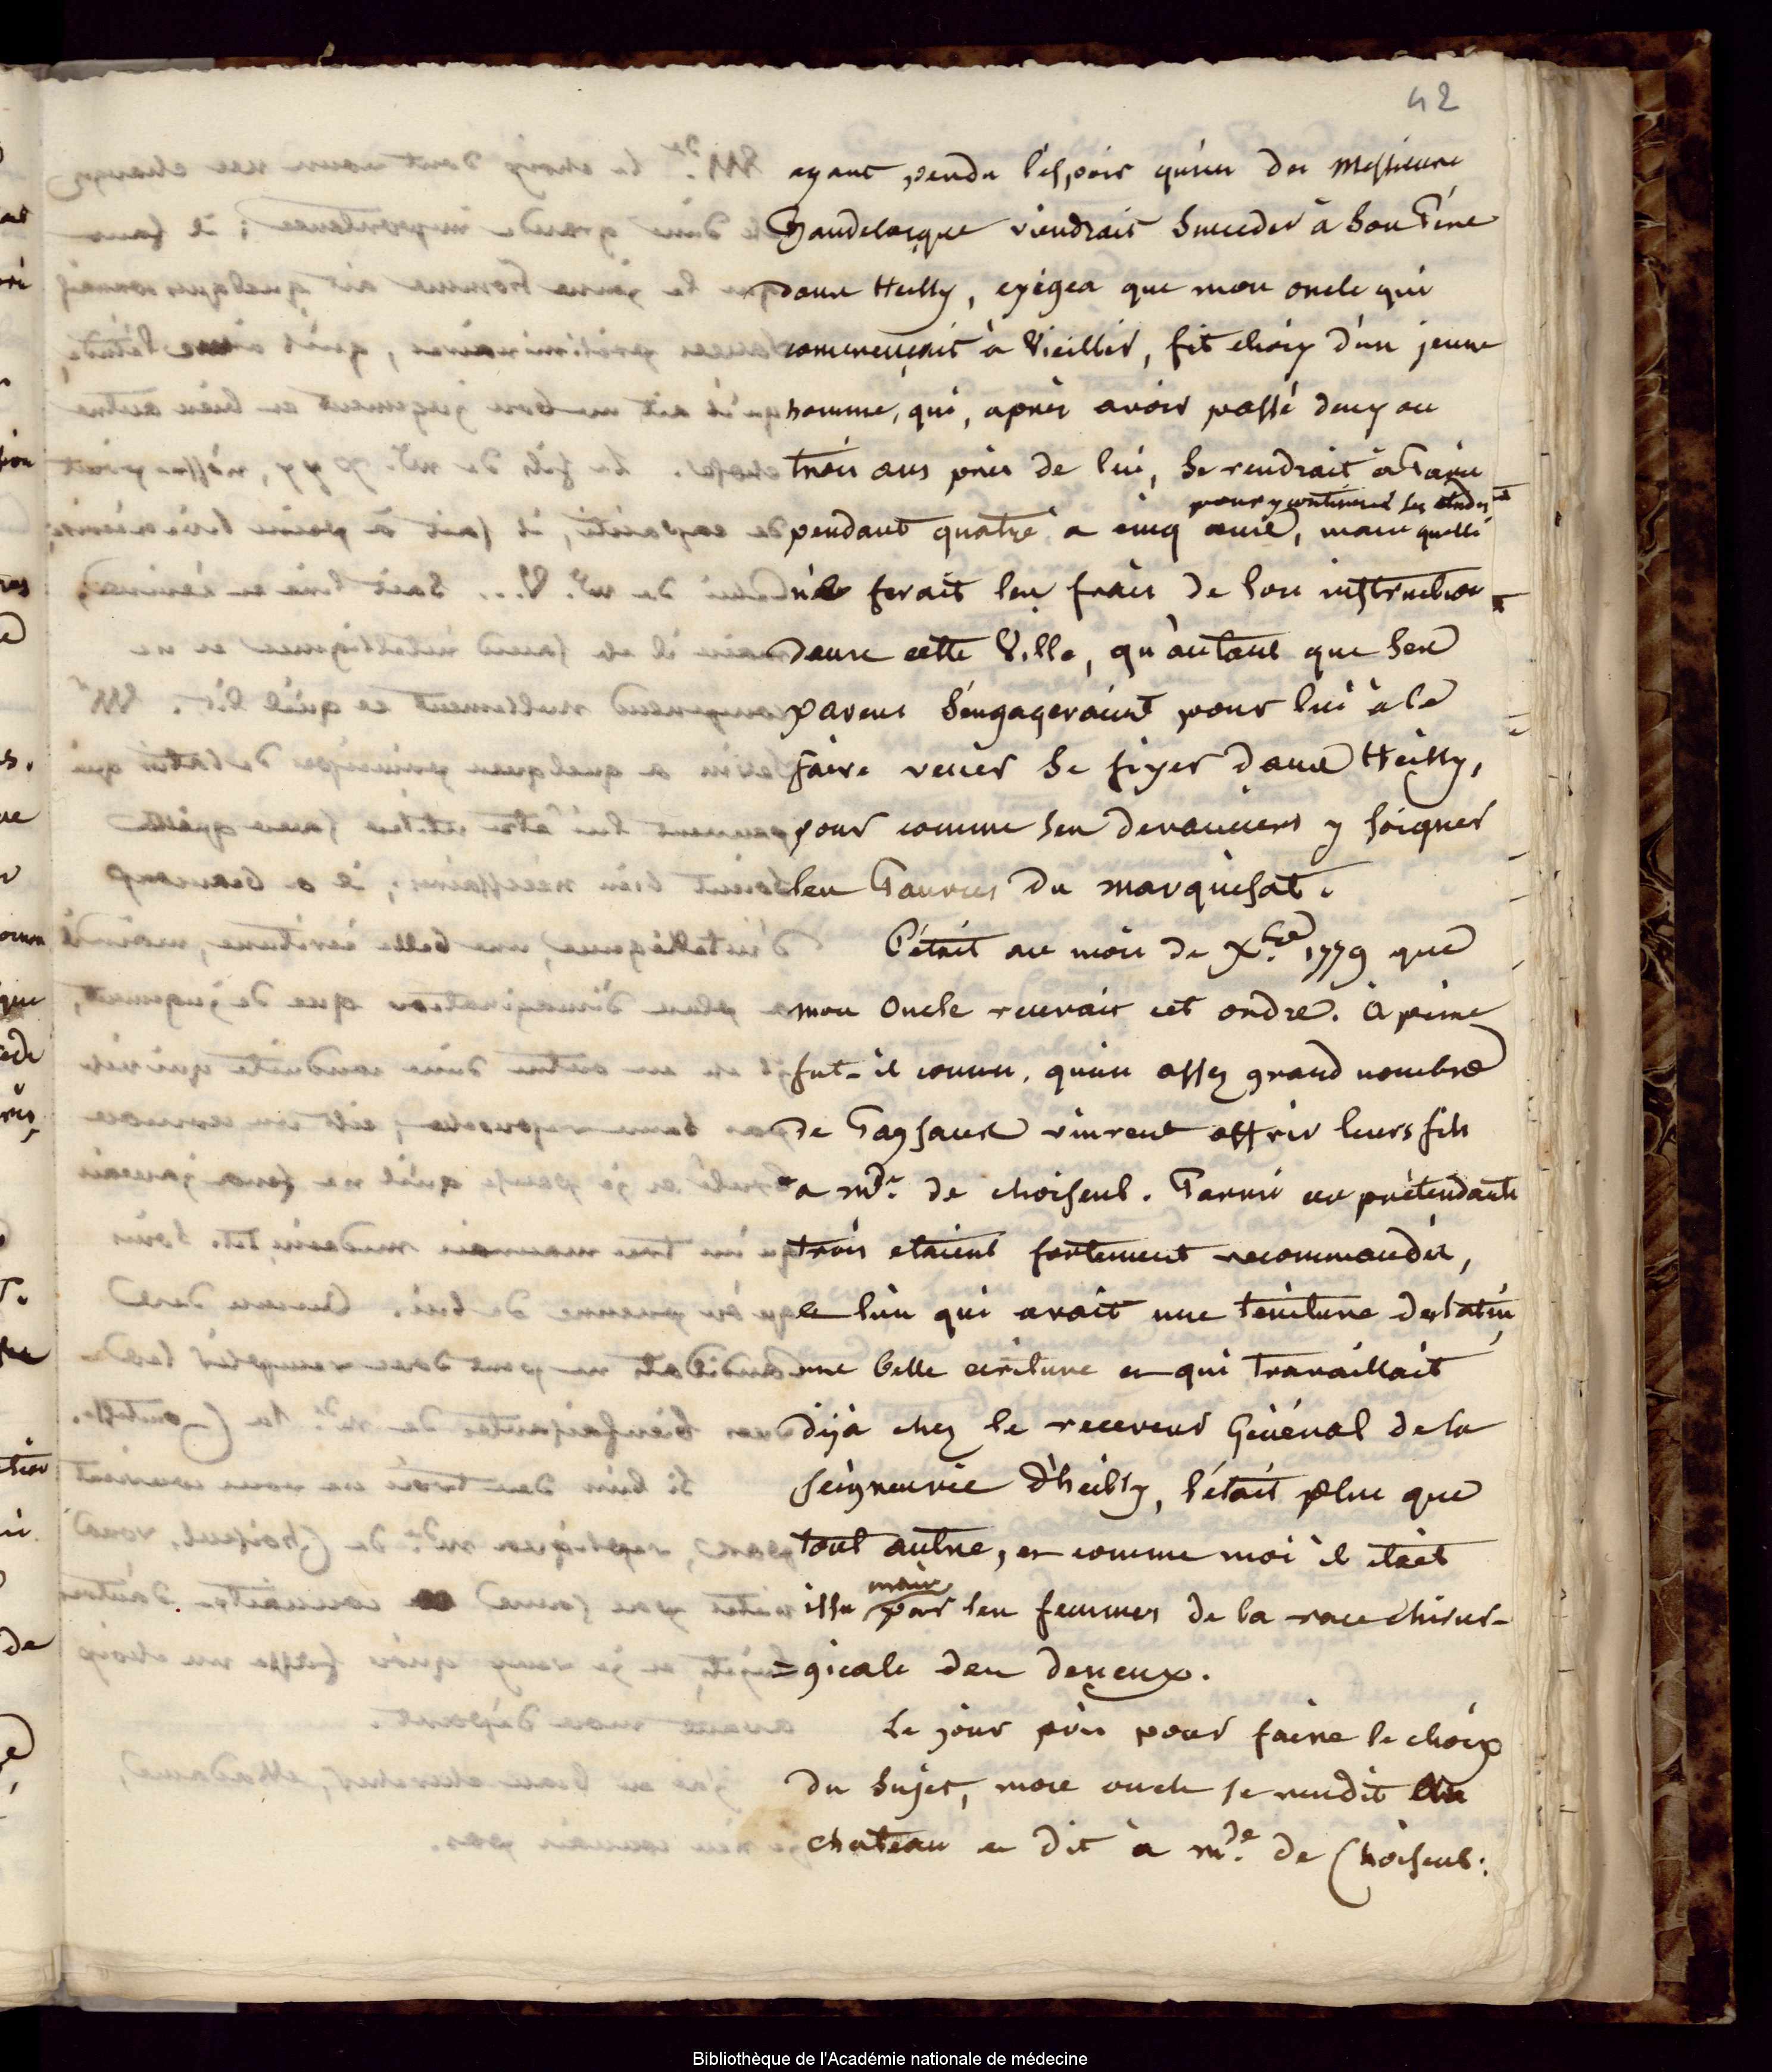 42
ayant perdu l'espoir qu'un des Messieurs
Baudelocque viendrait succeder à son Père
dans Heilly, exigea que mon oncle qui
commençait à vieillir, fit choix d'un jeune
homme, qui, après avoir passé deux ou
trois ans près de lui, se rendrait à Paris
pour y continuer ses études
pendant quatre à cinq ans, mais qu'elle
ne ferait les frais de son instruction
dans cette Ville, qu'autant que ses
parens s'engageraient pour lui à le
faire venir se fixer dans Heilly,
pour comme ses devanciers y soigner
les Pauvres du marquisat.
C'était au mois de Xbre 1779 que
mon Oncle recevait cet ordre. à peine
fut-il connu, qu'un assez grand nombre
de Paysans vinrent offrir leurs fils
a mde. de choiseul. Parmi ces prétendants
trois etaient fortement recommandés,
l'un qui avait une teinture de latin,
une belle ecriture et qui travaillait
déjà chez le receveur Général de la
seigneurie d'heilly, l'était plus que
tout autre, et comme moi il était
mais
issu par les femmes de la race chirur-
=gicale des deneux.
Le jour pris pour faire le choix
du Sujet, mon oncle se rendit au
chateau et dit à mde. de Choiseul:
Bibliothèque de l'Académie nationale de médecine